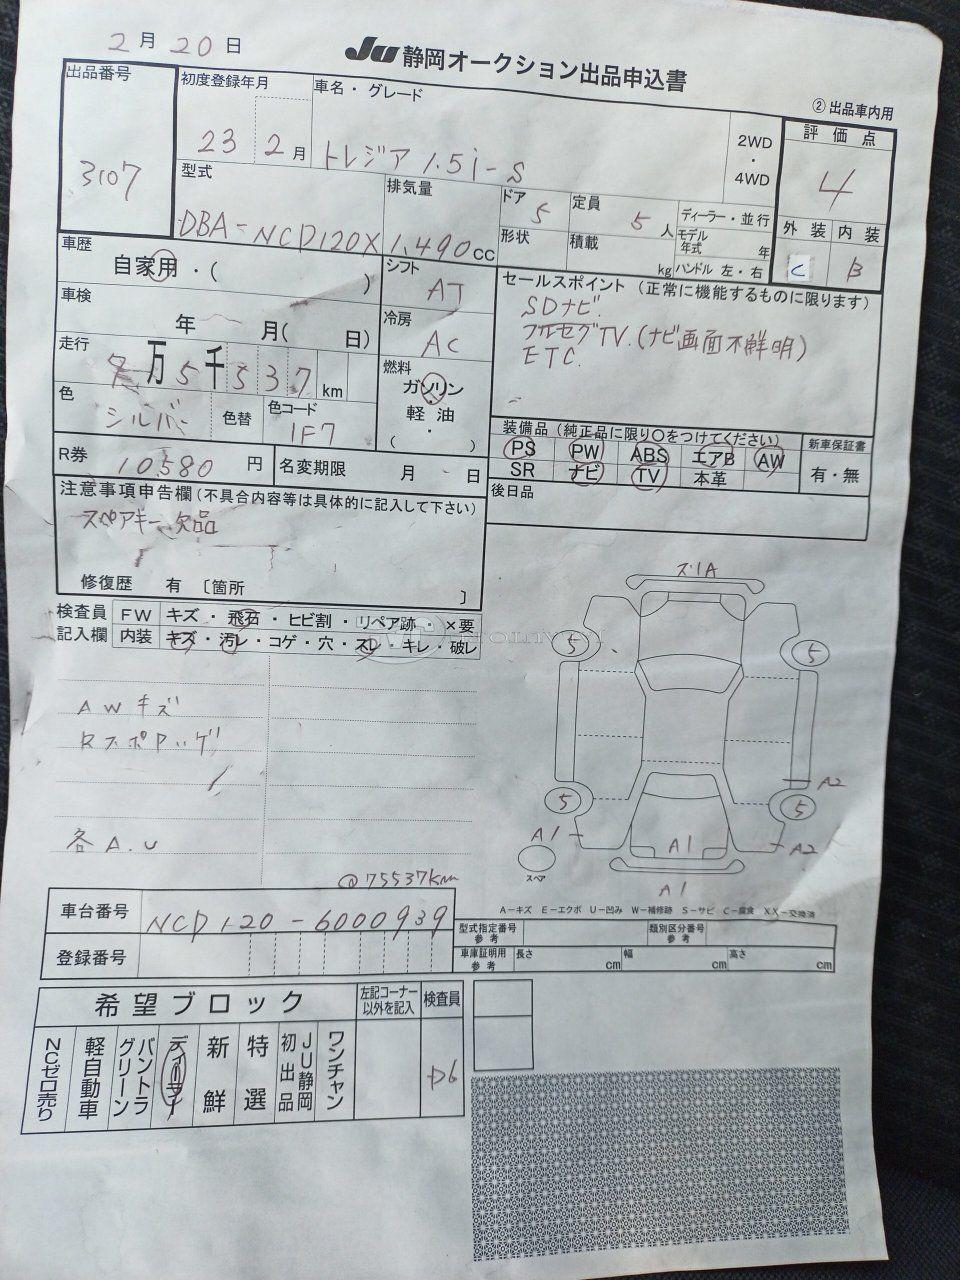 2月20日
JU 静岡オークション出品申込書
② 出品車内用
出品番号
3107
初度登録年月
23 2月
車名・グレード
トレジア 1.5i-S
2WD
・
4WD
評価点
4
外装 内装
C B
型式
DBA-NCP120X
排気量
1,490cc
ドア 5
定員 5人
ディーラー・並行
モデル年式 年
形状
積載 kg
ハンドル 左・右
車歴
自家用・( )
シフト
AT
車検
年 月( 日)
冷房
AC
セールスポイント (正常に機能するものに限ります)
SDナビ
フルセグTV.(ナビ画面不鮮明)
ETC.
走行
7万5千537km
燃料
ガソリン
・
軽油
( ・ )
色
シルバー
色替
色コード
1F7
装備品 (純正品に限り○をつけてください)
PS PW ABS エアB AW
SR ナビ TV 本革
新車保証書
有・無
R券 10580円
名変期限 月 日
後日品
注意事項申告欄(不具合内容等は具体的に記入して下さい)
スペアキー欠品
修復歴 有 〔箇所 〕
検査員
記入欄
FW キズ・飛石・ヒビ割・リペア跡・×要
内装 キズ・汚レ・コゲ・穴・スレ・キレ・破レ
AWキズ
RスポPハゲ
各A.U
@75537km
ズ1A
5 5
5 5
A2
A1 A1 A2
スペア
A1
A-キズ E-エクボ U-凹み W-補修跡 S-サビ C-腐食 XX-交換済
車台番号 NCP120-6000939
登録番号
型式指定番号 参考
類別区分番号 参考
車庫証明用 参考
長さ cm 幅 cm 高さ cm
希望ブロック
左記コーナー以外を記入
検査員
NCゼロ売り
軽自動車
バントラグリーン
ディーラー
新鮮
特選
JU静岡初出品
ワンチャン
D6